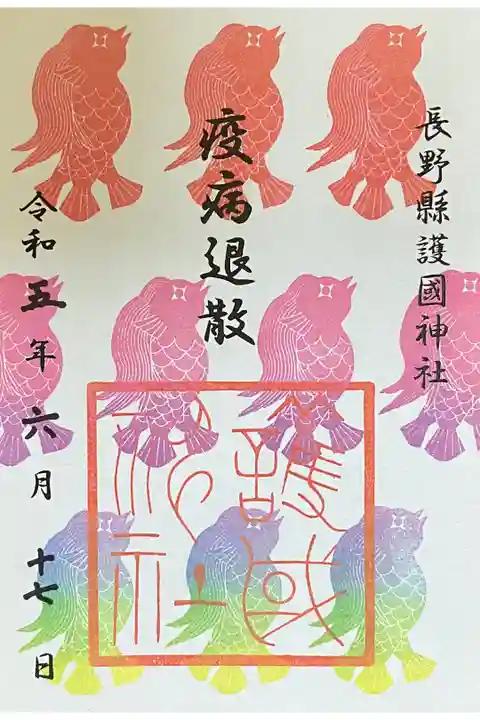 長野縣護國神社
疫病退散
護国
神社
令和五年六月十七日